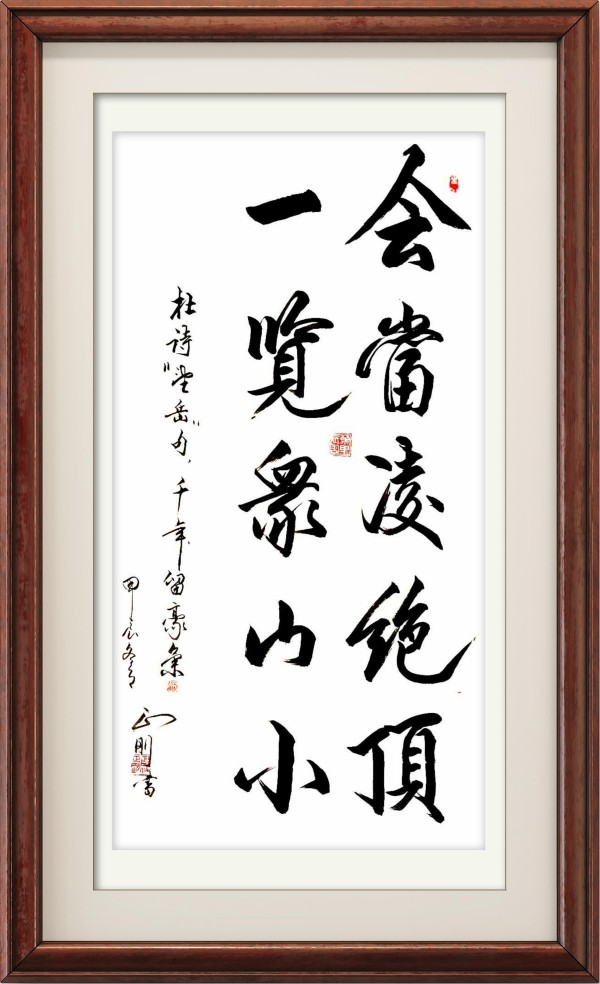 会當凌絶頂
一覽衆山小
杜诗“望岳”句，千年留豪氣
甲辰冬月
正刚書